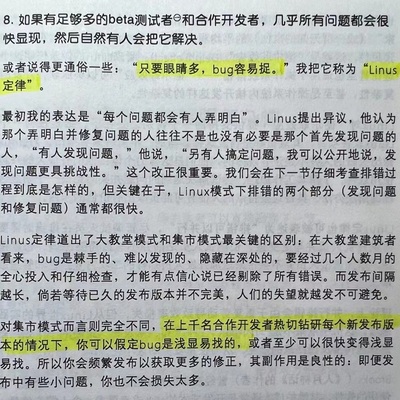 8. 如果有足够多的beta测试者⊖和合作开发者，几乎所有问题都会很
快显现，然后自然有人会把它解决。
或者说得更通俗一些：“只要眼睛多，bug容易捉。”我把它称为“Linus
定律”。
最初我的表达是“每个问题都会有人弄明白”。Linus提出异议，他认为
那个弄明白并修复问题的人往往不是也没有必要是那个首先发现问题的
人，“有人发现问题，”他说，“另有人搞定问题，我可以公开地说，发
现问题更具挑战性。”这个改正很重要。我们会在下一节仔细考查排错过
程到底是怎样的，但关键在于，Linux模式下排错的两个部分（发现问题
和修复问题）通常都很快。
Linus定律道出了大教堂模式和集市模式最关键的区别：在大教堂建筑者
看来，bug是棘手的、难以发现的、隐藏在深处的，要经过几个人数月的
全心投入和仔细检查，才能有点信心说已经剔除了所有错误。而发布间隔
越长，倘若等待已久的发布版本并不完美，人们的失望就越发不可避免。
对集市模式而言则完全不同，在上千名合作开发者热切钻研每个新发布版
本的情况下，你可以假定bug是浅显易找的，或者至少可以很快变得浅显
易找。所以你会频繁发布以获取更多的修正，其副作用是良性的：即便发
布中有些小问题，你也不会损失太多。